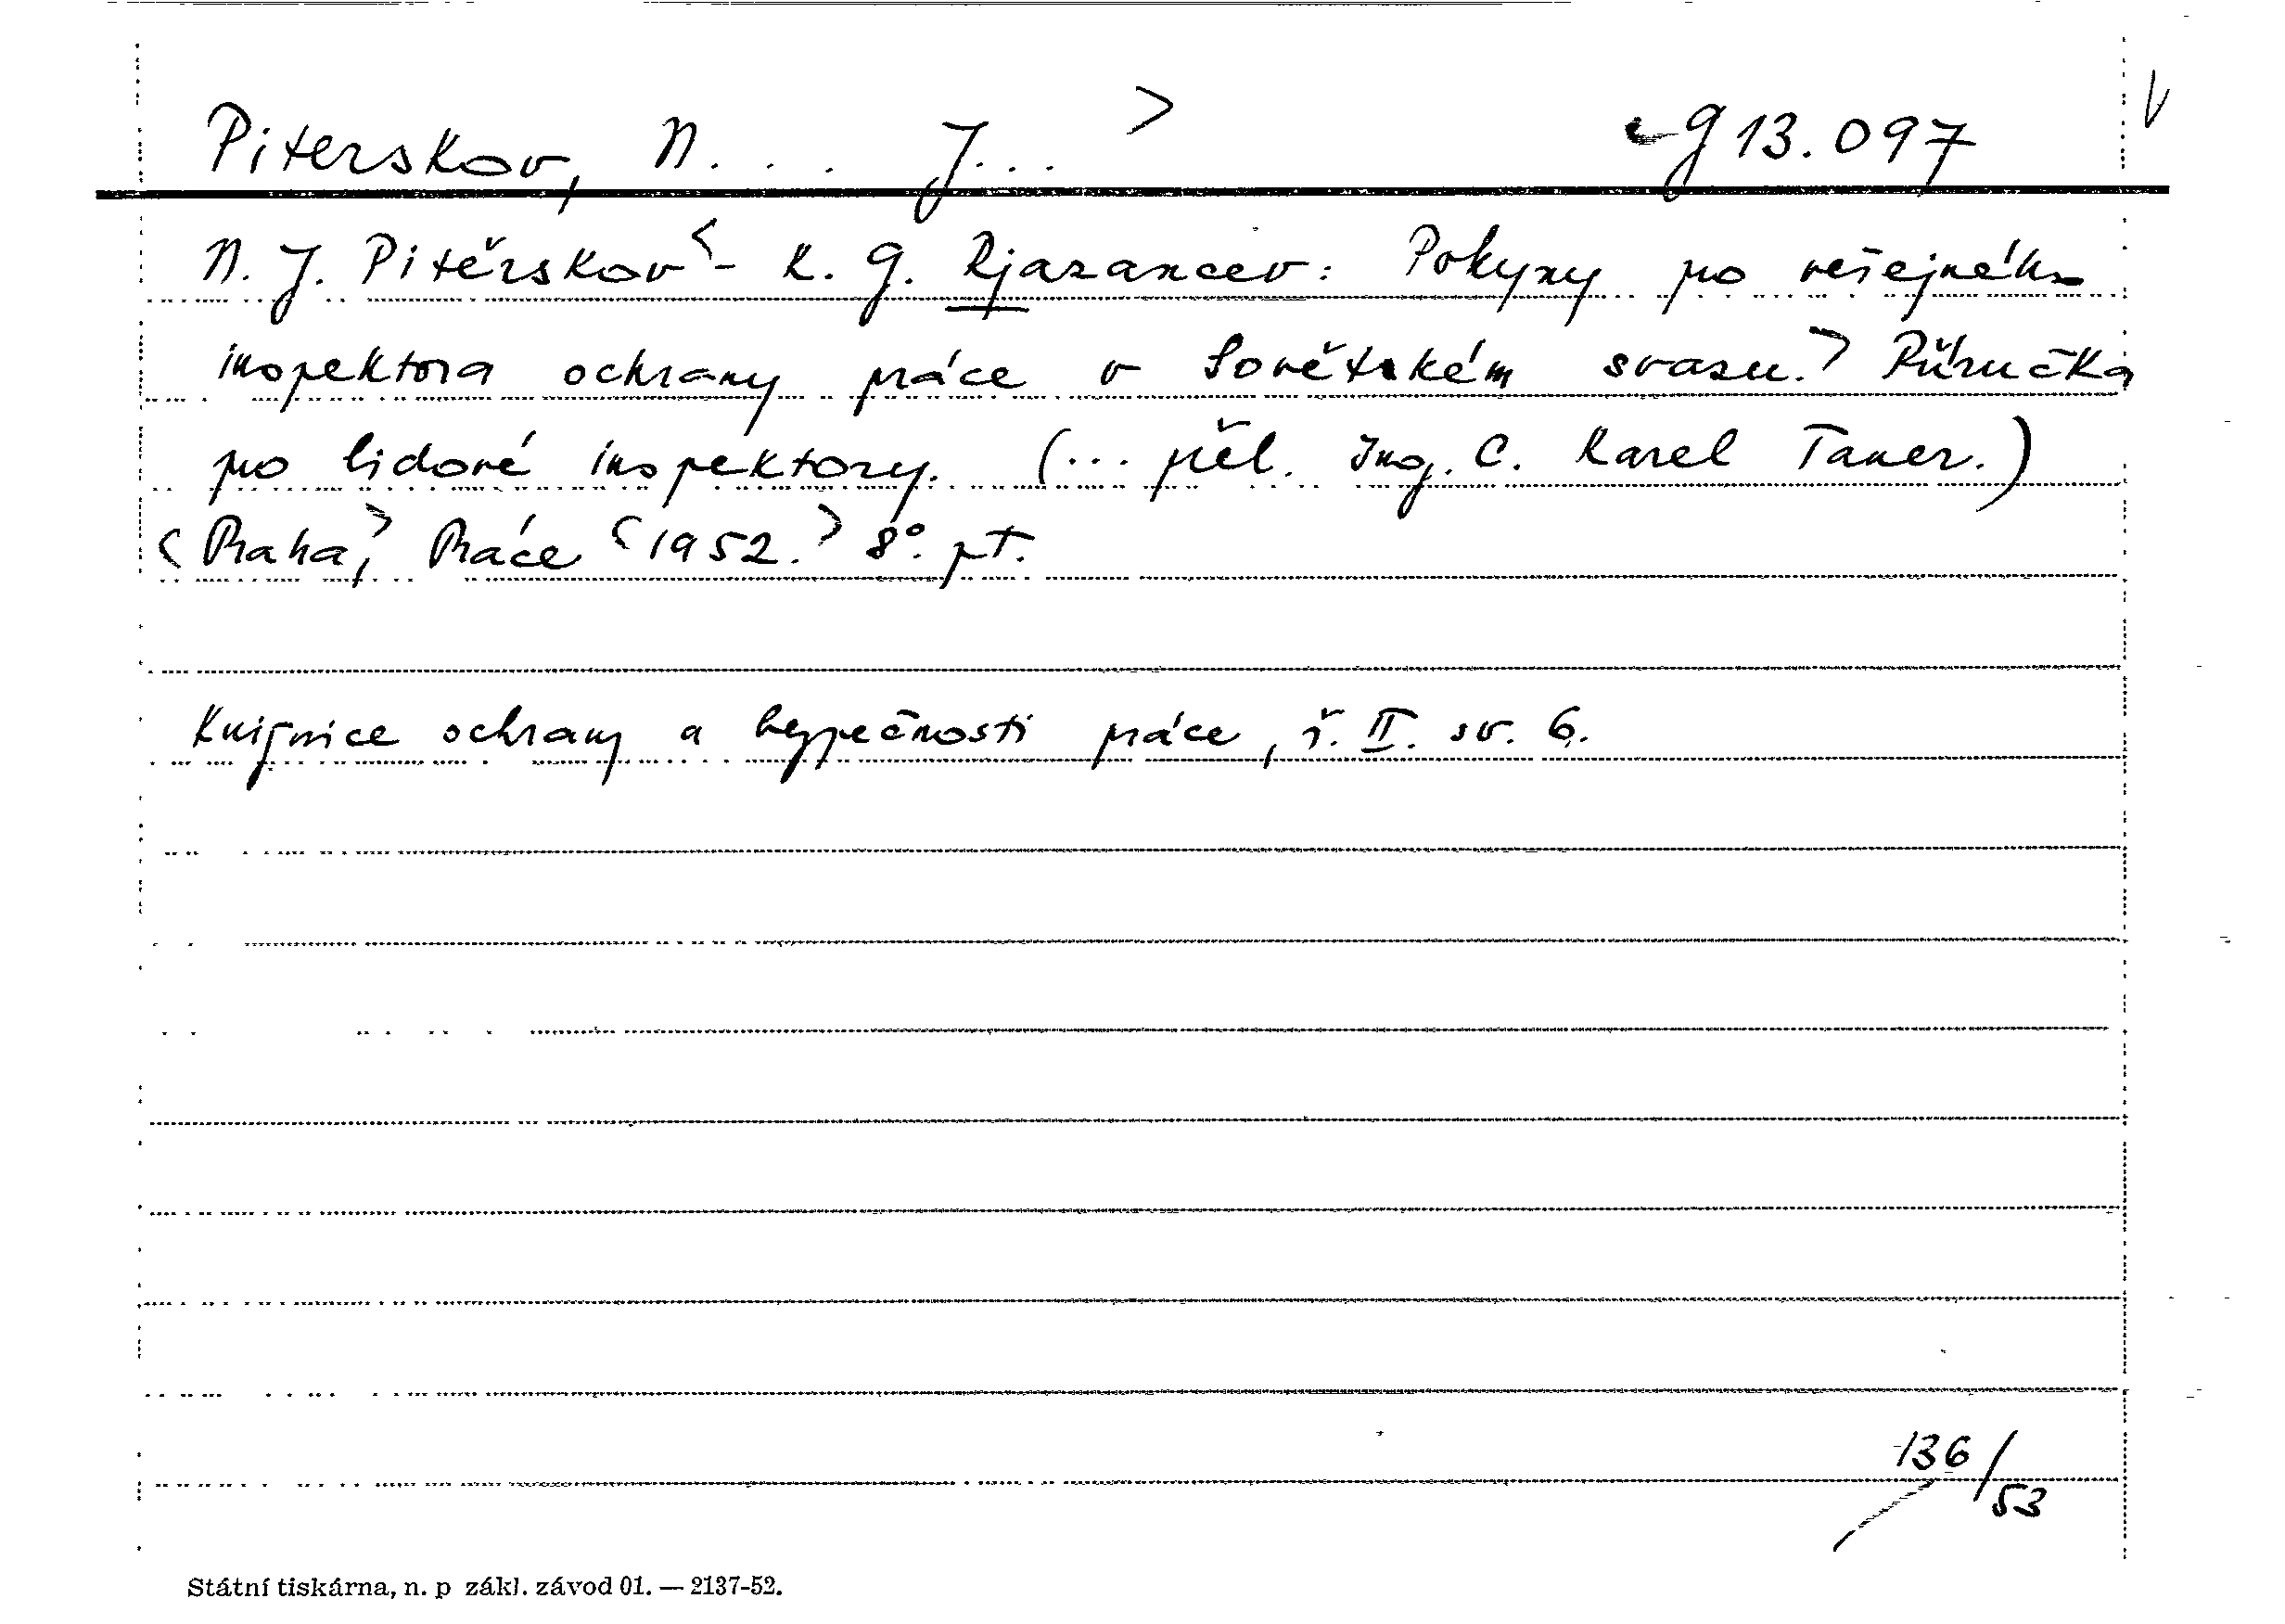 Piterskov, N... J...> g 13.097
N. J. Pitěrskov <- K. G. Rjazancev: Pokyny pro veřejného
inspektora ochrany práce v Sovětském svazu.> Příručka
pro lidové inspektory. (... přel. Ing. C. Karel Taner.)
<Praha,> Práce <1952.> 8°. pt.
Knižnice ochrany a bezpečnosti práce, ř. II. sv. 6.
136/53
Státní tiskárna, n. p zákl. závod 01. — 2137-52.